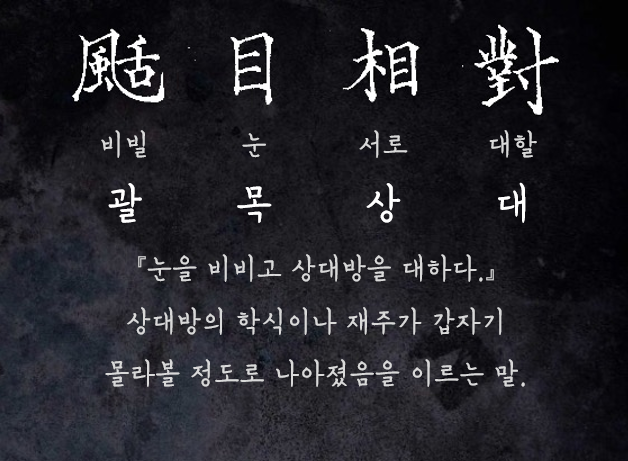 颳 目 相 對
비빌 눈 서로 대할
괄 목 상 대
『눈을 비비고 상대방을 대하다.』
상대방의 학식이나 재주가 갑자기
몰라볼 정도로 나아졌음을 이르는 말.